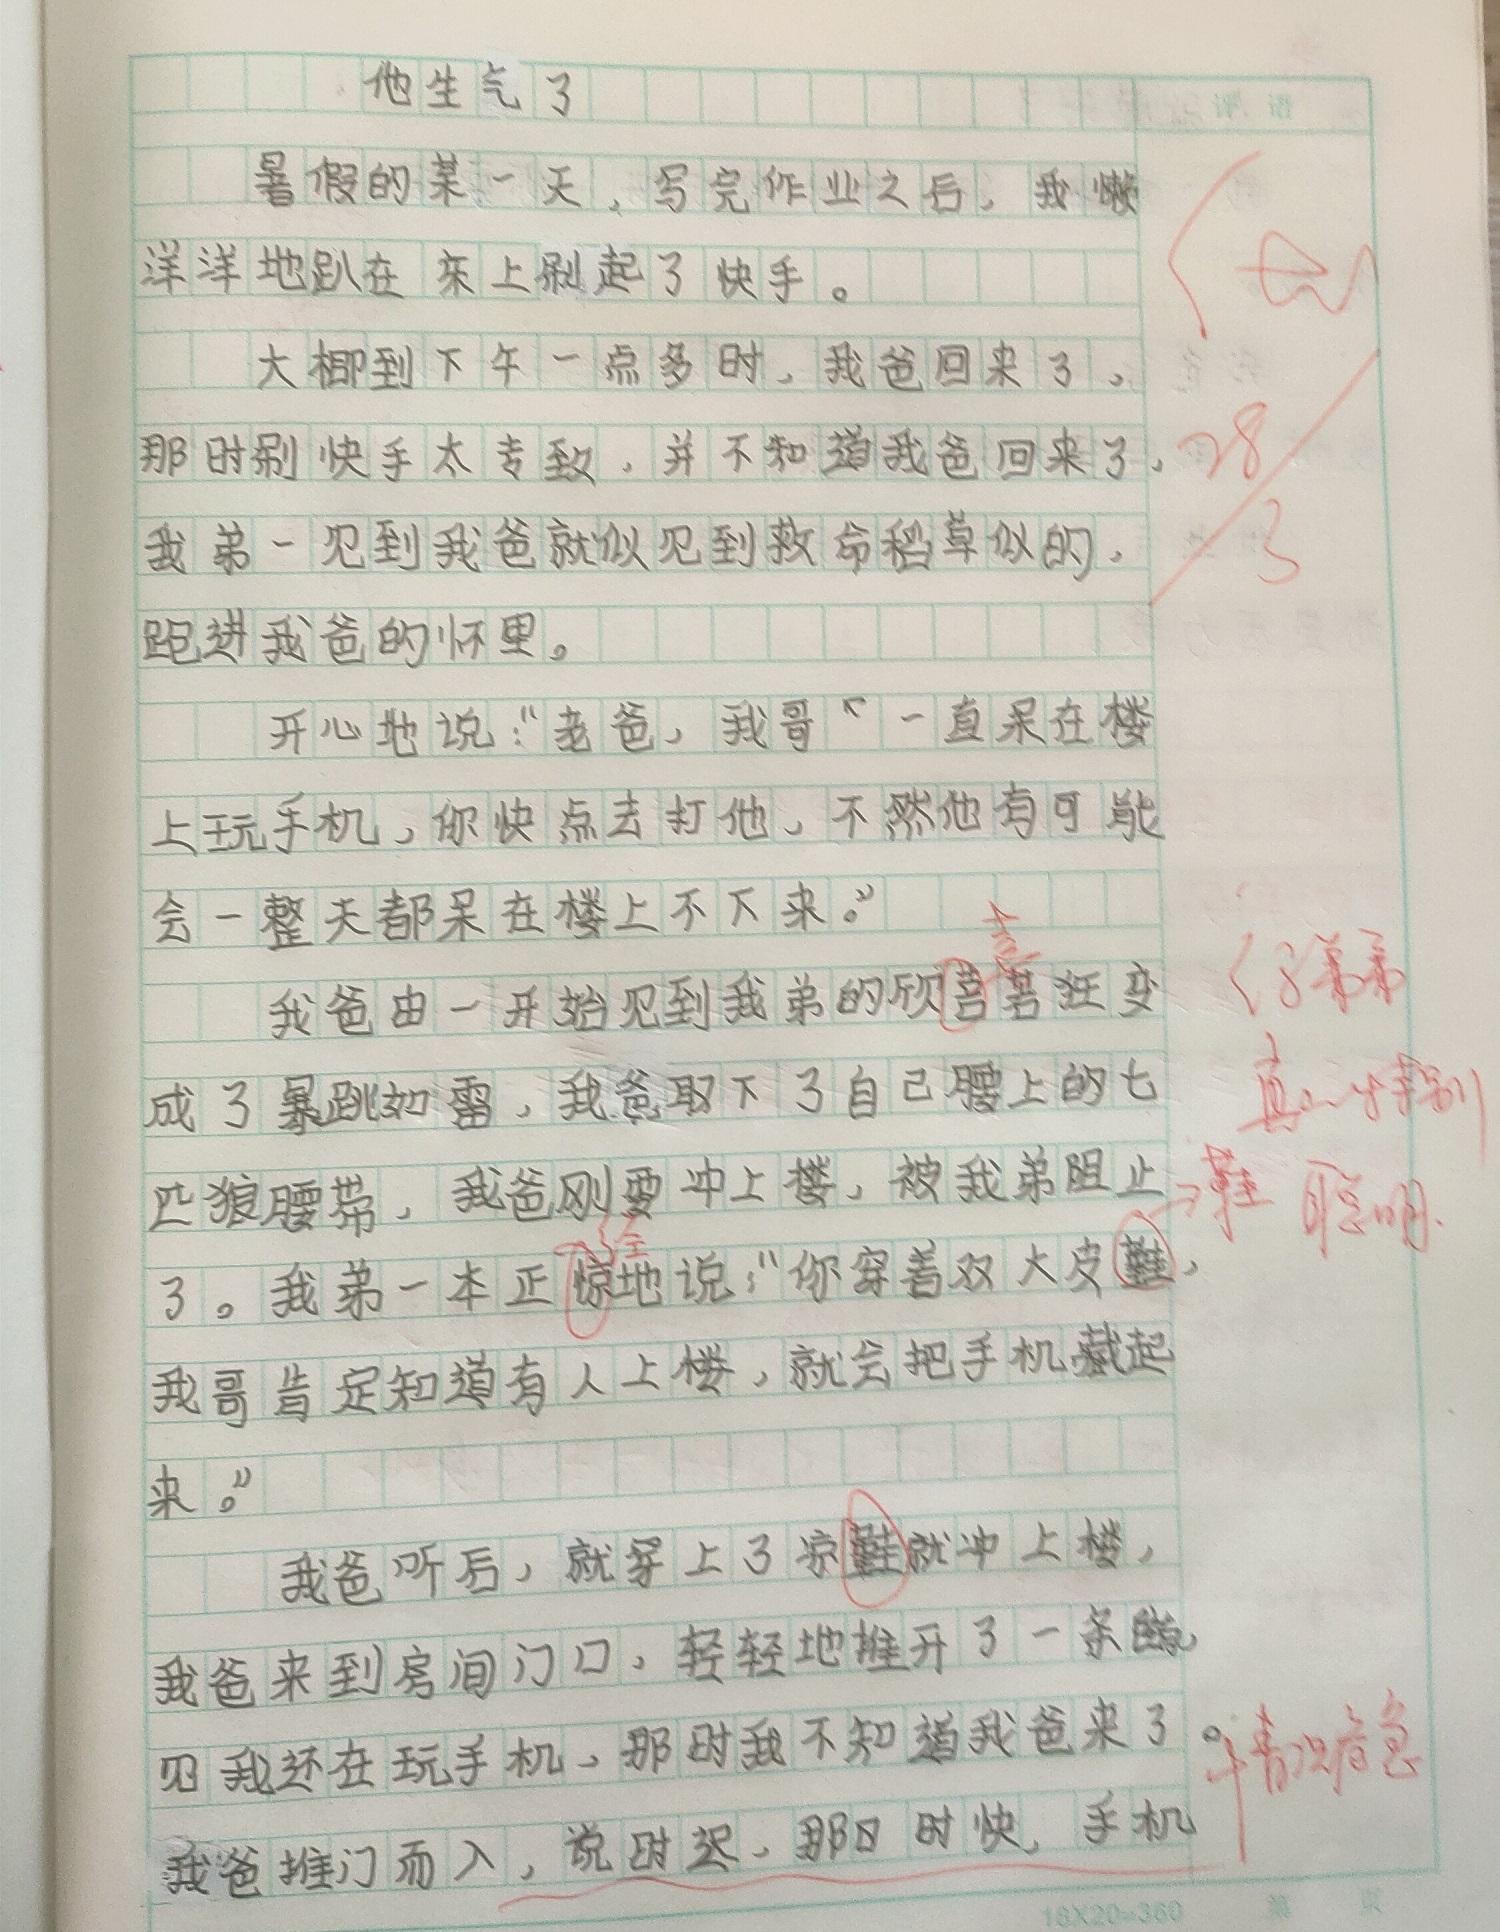 他生气了
评语
暑假的某一天，写完作业之后，我懒
洋洋地趴在床上刷起了快手。
大概到下午一点多时，我爸回来了，
那时刷快手太专致，并不知道我爸回来了，
28
我弟一见到我爸就似见到救命稻草似的，
3
跑进我爸的怀里。
开心地说："老爸，我哥一直呆在楼
上玩手机，你快点去打他，不然他有可能
会一整天都呆在楼上不下来。"
喜
我爸由一开始见到我弟的欣喜若狂变
弟弟
成了暴跳如雷，我爸取下了自己腰上的七
真
匹狼腰带，我爸刚要冲上楼，被我弟阻止
鞋 聪明.
经
了。我弟一本正惊地说："你穿着双大皮鞋，
我哥肯定知道有人上楼，就会把手机藏起
来。"
我爸听后，就穿上了凉鞋就冲上楼，
我爸来到房间门口，轻轻地推开了一条缝，
见我还在玩手机，那时我不知道我爸来了。
情况危急
我爸推门而入，说时迟，那日时快，手机
18X20=360 第 页